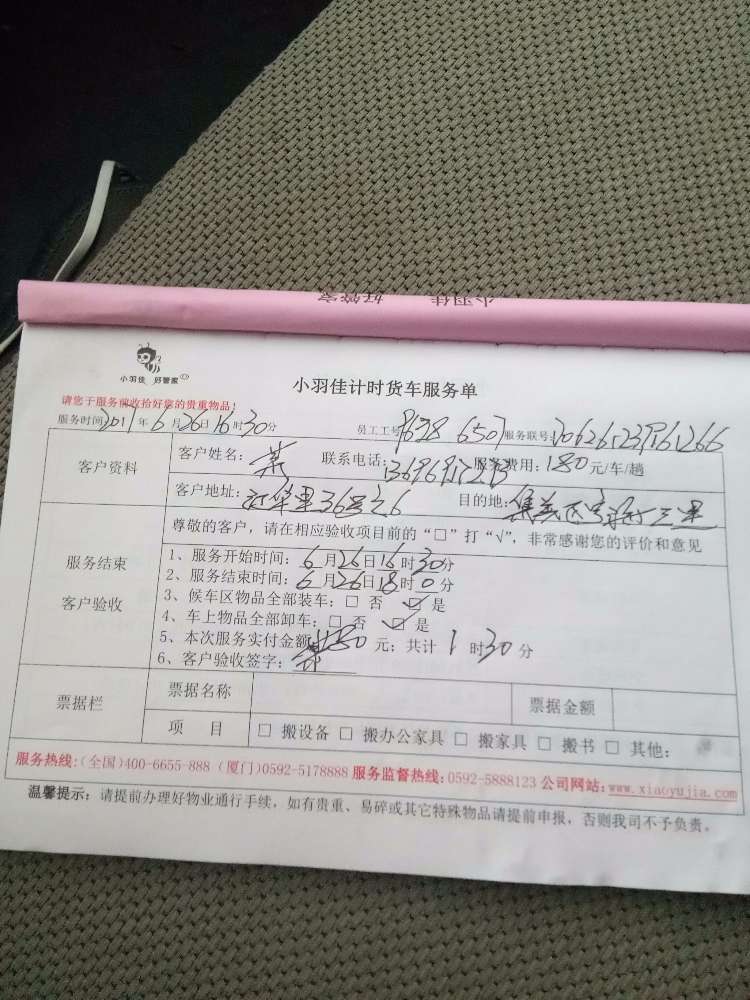 小羽佳 好管家
小羽佳 好管家
小羽佳计时货车服务单
请您于服务前收拾好您的贵重物品!
服务时间2017年6月26日16时30分 员工工号 9638 6507 服务联号:
客户资料 客户姓名: 联系电话: 服务费用:180元/车/趟
客户地址: 36号之6 目的地:集美区
尊敬的客户,请在相应验收项目前的“□”打“√”,非常感谢您的评价和意见
服务结束
客户验收
1、服务开始时间:6月26日16时30分
2、服务结束时间:6月26日18时0分
3、候车区物品全部装车:□ 否 ☑ 是
4、车上物品全部卸车:□ 否 ☑ 是
5、本次服务实付金额 180元;共计 1 时30分
6、客户验收签字:
票据栏 票据名称 票据金额
项 目 □ 搬设备 □ 搬办公家具 □ 搬家具 □ 搬书 □ 其他:
服务热线:(全国)400-6655-888 (厦门)0592-5178888 服务监督热线:0592-5888123 公司网站:www.xiaoyujia.com
温馨提示:请提前办理好物业通行手续,如有贵重、易碎或其它特殊物品请提前申报,否则我司不予负责。